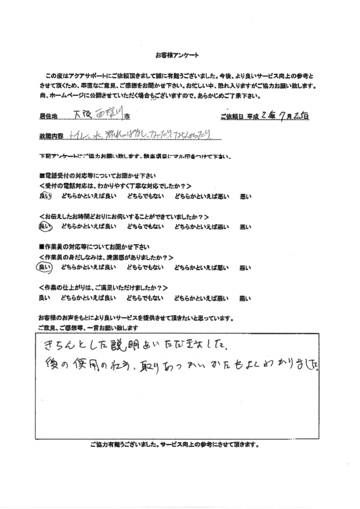 お客様アンケート
この度はアクアサポートにご依頼頂きまして誠に有難うございました。今後、より良いサービス向上の参考と
させて頂くため、率直なご意見、ご感想をお聞かせ下さい。お忙しい中、恐れ入りますがご協力お願い致します。
尚、ホームページに公開させていただく場合もございますので、あらかじめご了承下さい。
居住地 大阪 市 ご依頼日 平成 年 7月 日
故障内容 トイレ、水
下記アンケートにご協力お願い致します。該当項目にマル印をつけて下さい。
■電話受付の対応等についてお聞かせ下さい
<受付の電話対応は、わかりやすく丁寧な対応でしたか?>
良い どちらかといえば良い どちらでもない どちらかといえば悪い 悪い
<お伝えしたお時間どおりにお伺いすることができていましたか?>
良い どちらかといえば良い どちらでもない どちらかといえば悪い 悪い
■作業員の対応等についてお聞かせ下さい
<作業員の身だしなみは、清潔感がありましたか?>
良い どちらかといえば良い どちらでもない どちらかといえば悪い 悪い
<作業の仕上がりは、ご満足いただけましたか?>
良い どちらかといえば良い どちらでもない どちらかといえば悪い 悪い
お客様のお声をもとにより良いサービスを提供させて頂きたいと思っています。
ご意見、ご感想等、一言お願い致します
きちんとした説明をいただきました。
後の使用の仕方、取りあつかいかたもよくわかりました。
ご協力有難うございました。サービス向上の参考にさせて頂きます。